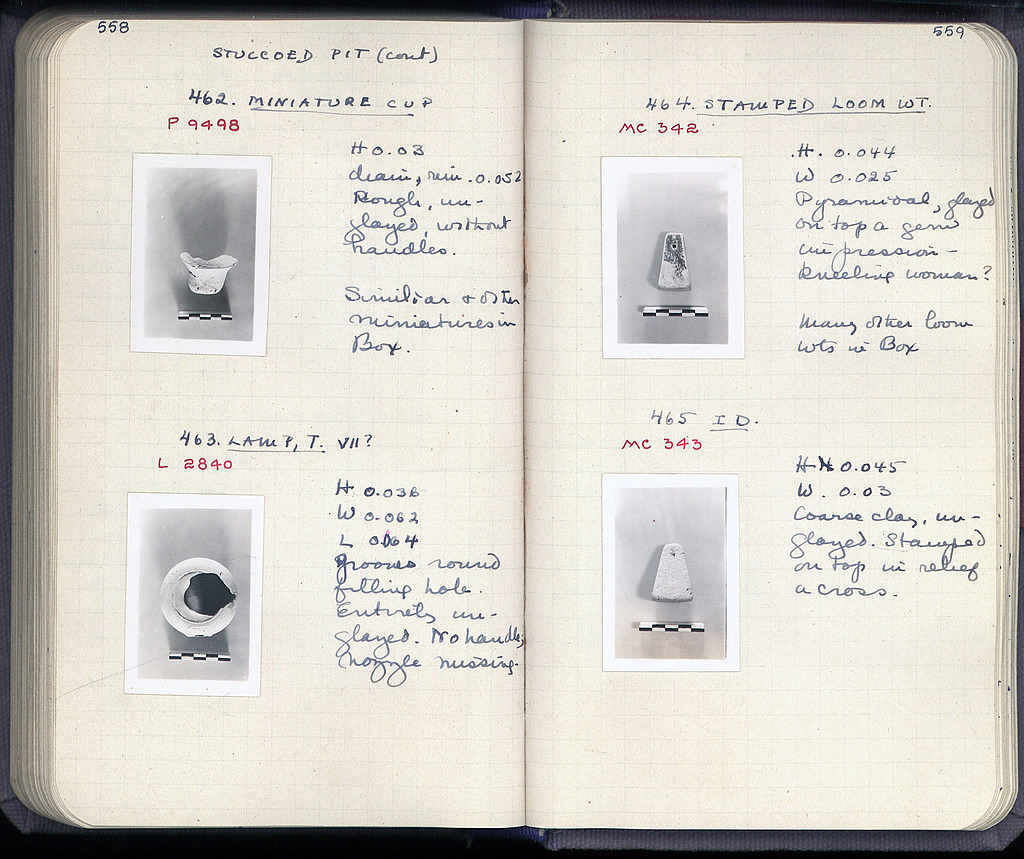 558
STUCCOED PIT (cont)
462. MINIATURE CUP
P 9498
H 0.03
diam, rim. 0.052
Rough, un-
glazed, without
handles.
Similar & other
miniatures in
Box.
463. LAMP, T. VII?
L 2840
H 0.036
W 0.062
L 0.064
Grooves round
filling hole.
Entirely un-
glazed. No handle,
nozzle missing.
559
464. STAMPED LOOM WT.
MC 342
H. 0.044
W 0.025
Pyramidal, glazed
on top a gem
impression -
kneeling woman?
Many other loom
wts in Box
465 ID.
MC 343
H 0.045
W. 0.03
Coarse clay, un-
glazed. Stamped
on top in relief
a cross.